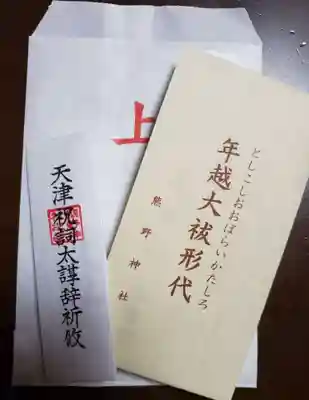 上
天津祝詞太諄辞祈攸
としこしおおばらいかたしろ
年越大祓形代
熊野神社